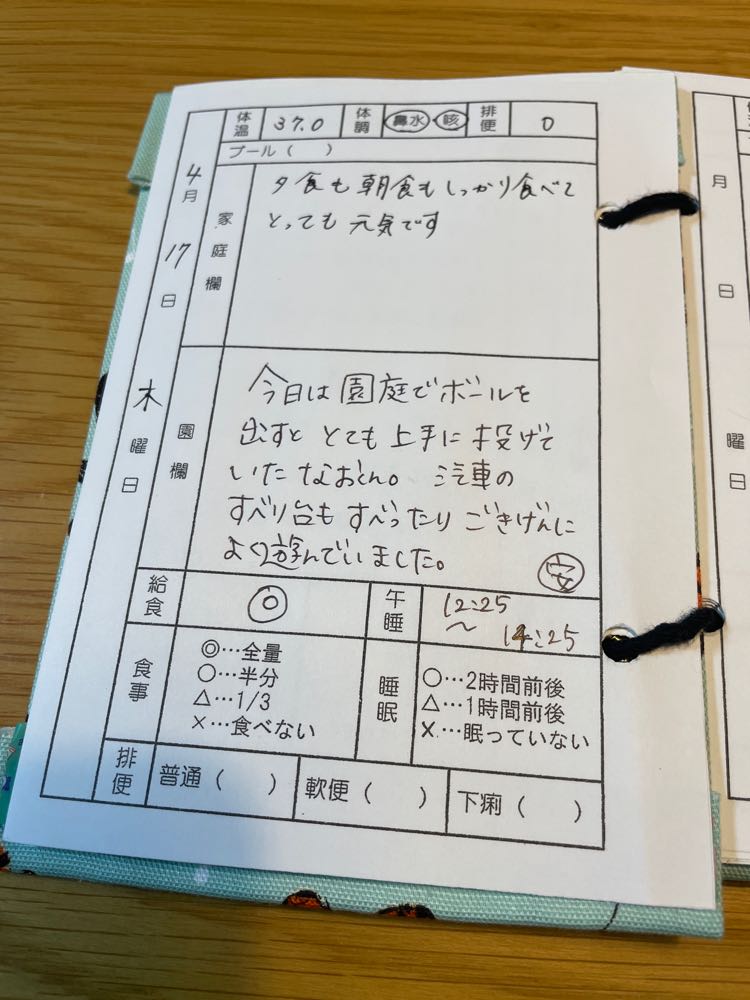 体温 37.0 体調 鼻水・咳 排便 0
プール（　）
4月17日 木曜日
家庭欄
夕食も朝食もしっかり食べて
とっても元気です
園欄
今日は園庭でボールを
出すととても上手に投げて
いたなおくん。汽車の
すべり台もすべったりごきげんに
より遊んでいました。
安
給食 ◎ 午睡 12:25
～ 14:25
食事
◎…全量
○…半分
△…1/3
×…食べない
睡眠
○…2時間前後
△…1時間前後
×…眠っていない
排便 普通（　） 軟便（　） 下痢（　）
月
日
曜日